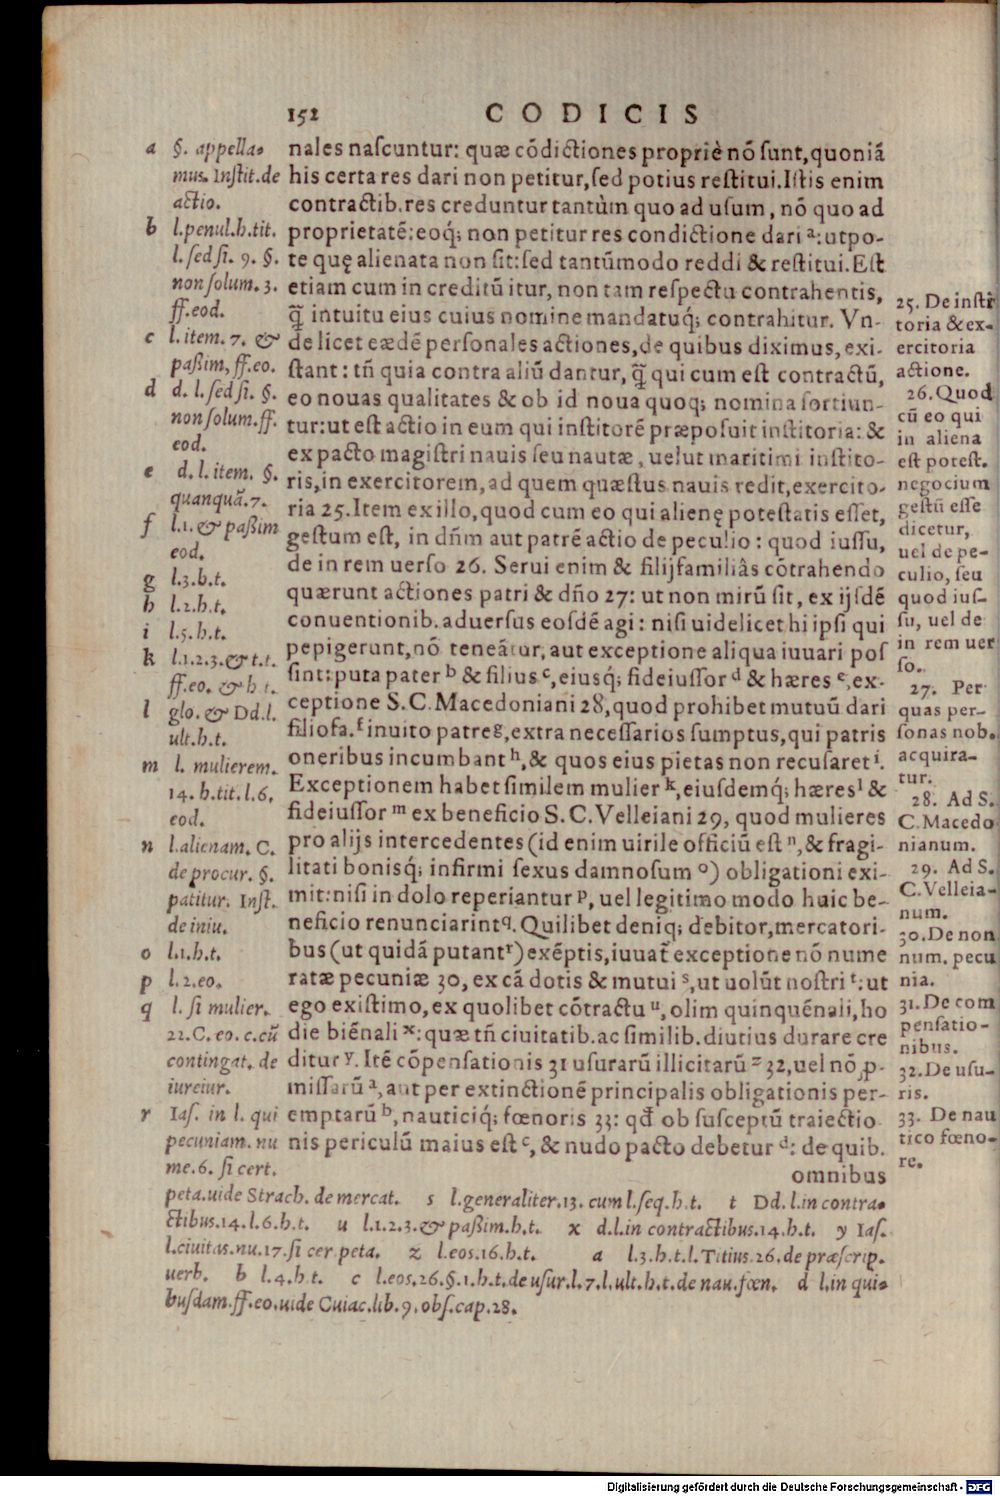 152 CODICIS
nales nascuntur: quæ cōdictiones propriè nō sunt, quoniā
his certa res dari non petitur, sed potius restitui. Istis enim
contractib. res creduntur tantùm quo ad usum, nō quo ad
proprietatē: eoq́; non petitur res condictione dari ᵃ: utpo-
te quę alienata non sit: sed tantūmodo reddi & restitui. Est
etiam cum in creditū itur, non tam respectu contrahentis,
q̄ intuitu eius cuius nomine mandatuq́; contrahitur. Vn-
de licet eædē personales actiones, de quibus diximus, exi-
stant: tñ quia contra aliū dantur, q̄ qui cum est contractū,
eo nouas qualitates & ob id noua quoq; nomina sortiun-
tur: ut est actio in eum qui institorē præposuit institoria: &
ex pacto magistri nauis seu nautæ, uelut maritimi instito-
ris, in exercitorem, ad quem quæstus nauis redit, exercito-
ria 25. Item ex illo, quod cum eo qui alienę potestatis esset,
gestum est, in dñm aut patrē actio de peculio: quod iussu,
de in rem uerso 26. Serui enim & filijfamiliâs cōtrahendo
quærunt actiones patri & dño 27: ut non mirū sit, ex ijsdē
conuentionib. aduersus eosdē agi: nisi uidelicet hi ipsi qui
pepigerunt, nō teneātur, aut exceptione aliqua iuuari pos
sint: puta pater ᵇ & filius ᶜ, eiusq́; fideiussor ᵈ & hæres ᵉ, ex-
ceptione S. C. Macedoniani 28, quod prohibet mutuū dari
filiofa. ᶠ inuito patre ᵍ, extra necessarios sumptus, qui patris
oneribus incumbant ʰ, & quos eius pietas non recusaret ⁱ.
Exceptionem habet similem mulier ᵏ, eiusdemq́; hæres ˡ &
fideiussor ᵐ ex beneficio S. C. Velleiani 29, quod mulieres
pro alijs intercedentes (id enim uirile officiū est ⁿ, & fragi-
litati bonisq́; infirmi sexus damnosum ᵒ) obligationi exi-
mit: nisi in dolo reperiantur ᵖ, uel legitimo modo huic be-
neficio renunciarint q. Quilibet deniq; debitor, mercatori-
bus (ut quidā putant ʳ) exēptis, iuuat̃ exceptione nō nume
ratæ pecuniæ 30, ex cā dotis & mutui ˢ, ut uolūt nostri ᵗ: ut
ego existimo, ex quolibet cōtractu ᵘ, olim quinquēnali, ho
die biēnali ˣ: quæ tñ ciuitatib. ac similib. diutius durare cre
ditur ʸ. Itē cōpensationis 31 usurarū illicitarū ᶻ 32, uel nō ꝓ-
missarū ᵃ, aut per extinctionē principalis obligationis per-
emptarū ᵇ, nauticiq́; fœnoris 33: qđ ob susceptū traiectio
nis periculū maius est ᶜ, & nudo pacto debetur ᵈ: de quib.
omnibus
a §. appella-
mus. Instit. de
actio.
b l. penul. h. tit.
l. sed si. 9. §.
non solum. 3.
ff. eod.
c l. item. 7. &
paßim, ff. eo.
d d. l. sed si. §.
non solum. ff.
eod.
e d. l. item. §.
quanquā. 7.
f l. 1. & paßim
eod.
g l. 3. b. t.
h l. 2. h. t.
i l. 5. h. t.
k l. 1. 2. 3. & t. t.
ff. eo. & h t.
l glo. & Dd. l.
ult. h. t.
m l. mulierem.
14. h. tit. l. 6,
eod.
n l. alienam. C.
de procur. §.
patitur. Inst.
de iniu.
o l. 1. h. t.
p l. 2. eo.
q l. si mulier.
22. C. eo. c. cū
contingat. de
iureiur.
r Ias. in l. qui
pecuniam. nu
me. 6. si cert.
peta. uide Strach. de mercat. s l. generaliter. 13. cum l. seq. h. t. t Dd. l. in contra-
ctibus. 14. l. 6. h. t. u l. 1. 2. 3. & paßim. h. t. x d. l. in contractibus. 14. h. t. y Ias.
l. ciuitas. nu. 17. si cer peta. z l. eos. 16. h. t. a l. 3. h. t. l. Titius. 26. de præscrip.
uerb. b l. 4. h. t. c l. eos. 26. §. 1. h. t. de usur. l. 7. l. ult. h. t. de nau. fœn. d l. in qui-
busdam. ff. eo. uide Cuiac. lib. 9. obs. cap. 28.
25. De insti
toria & ex-
ercitoria
actione.
26. Quod
cū eo qui
in aliena
est potest.
negocium
gestū esse
dicetur,
uel de pe-
culio, seu
quod ius-
su, uel de
in rem uer
so.
27. Per
quas per-
sonas nob.
acquira-
tur.
28. Ad S.
C. Macedo
nianum.
29. Ad S.
C. Velleia-
num.
30. De non
num. pecu
nia.
31. De com
pensatio-
nibus.
32. De usu-
ris.
33. De nau
tico fœno-
re.
Digitalisierung gefördert durch die Deutsche Forschungsgemeinschaft - DFG